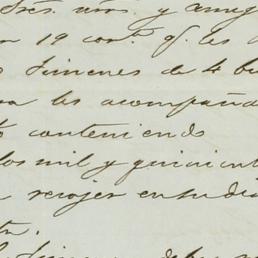 Sres. mos. y amig
19 corte. q. les
Jimenes de 4 bu
les acompañad
conteniendo
dos mil y quinient
recojer en su dia